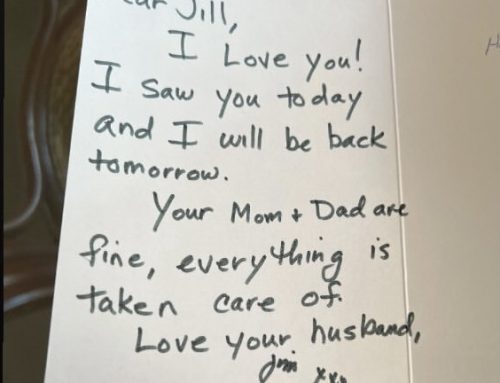 Jill,
I Love you!
I saw you today
and I will be back
tomorrow.
Your Mom + Dad are
fine, everything is
taken care of.
Love your husband,
Jim xxx